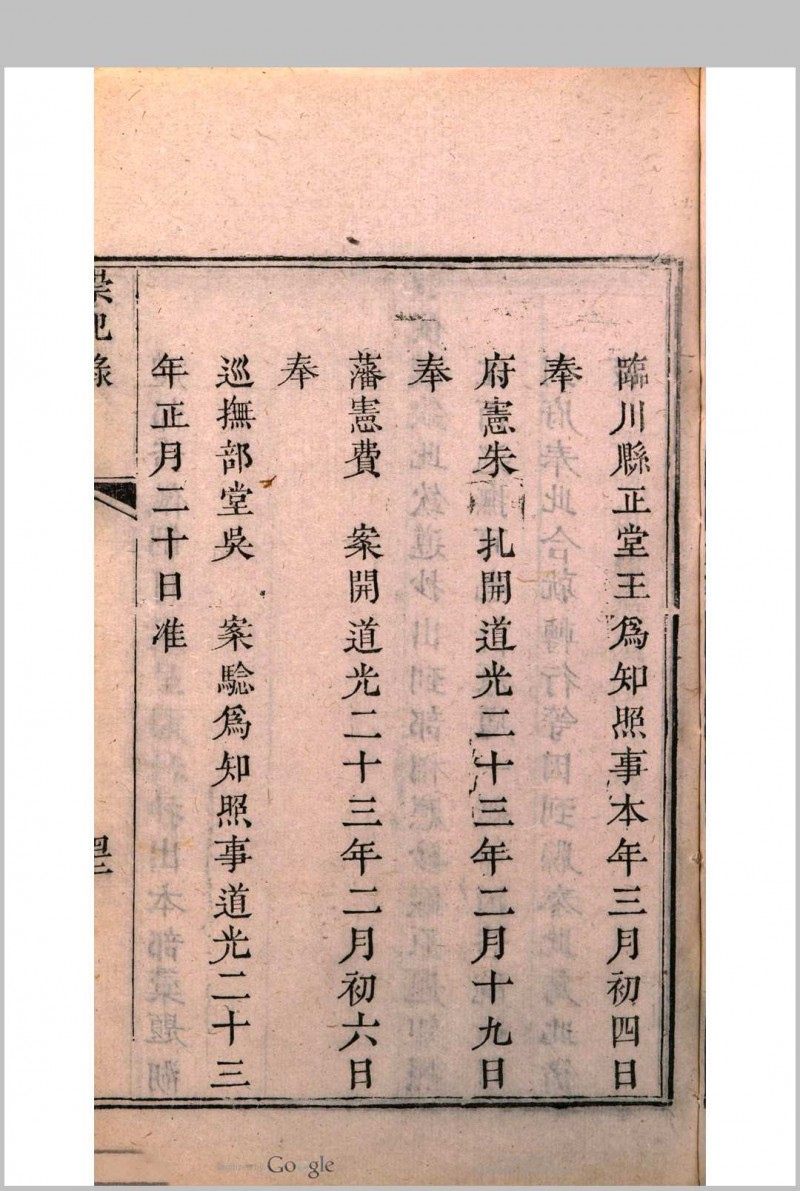 臨川縣正堂王爲知照事本年三月初四日
奉
府憲朱札開道光二十三年二月十九日
奉
藩憲費 案開道光二十三年二月初六日
奉
巡撫部堂吳 案騐爲知照事道光二十三
年正月二十日准
祀錄
Google